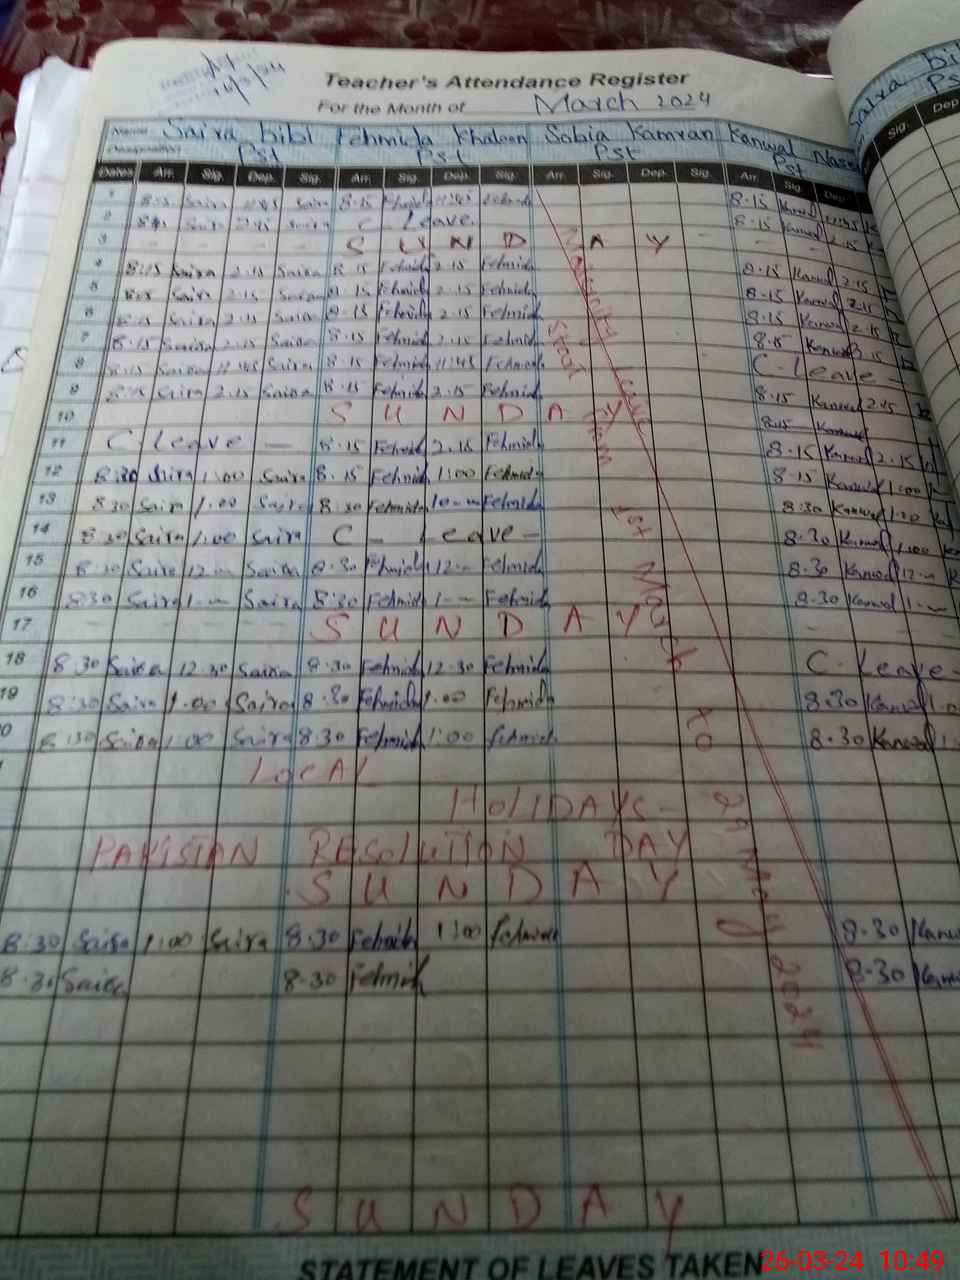 Teacher's Attendance Register
For the Month of March 2024
Name Saira bibi Fehmida Khatoon Sobia Kamran Kanwal
Designation Pst Pst Pst Pst
Dates Arr. Sig. Dep. Sig. Arr. Sig. Dep. Sig. Arr. Sig. Dep. Sig. Arr. Sig. Dep.
1 8:15 Saira 11:45 Saira 8.15 Fehmida 11:45 Fehmida 8.15 Kanwal
2 Saira 2:15 Saira C Leave 8.15 Kanwal 2.15
3 S U N D A Y
4 8:15 Saira 2.15 Saira 8.15 Fehmida 2.15 Fehmida 8.15 Kanwal 2.15
5 8:15 Saira 2.15 Saira 8.15 Fehmida 2.15 Fehmida 8.15 Kanwal 2.15
6 8:15 Saira 2.15 Saira 8.15 Fehmida 2.15 Fehmida 8.15 Kanwal 2.15
7 8.15 Saira 2.15 Saira 8.15 Fehmida 2.15 Fehmida 8.15 Kanwal 2.15
8 8:15 Saira 11:45 Saira 8.15 Fehmida 11:45 Fehmida C-Leave-
9 8:15 Saira 2.15 Saira 8.15 Fehmida 2.15 Fehmida 8.15 Kanwal 2.15
10 S U N D A Y 8.15 Kanwal
11 C Leave - 8.15 Fehmida 2.15 Fehmida 8.15 Kanwal 2.15
12 8:30 Saira 1:00 Saira 8.15 Fehmida 1:00 Fehmida 8.15 Kanwal 1:00
13 8:30 Saira 1.00 Saira 8.30 Fehmida Fehmida 8:30 Kanwal
14 8:30 Saira 1:00 Saira C - Leave - 8.30 Kanwal 1:00
15 8:30 Saira 12-- Saira 8.30 Fehmida 12-- Fehmida 8.30 Kanwal 12--
16 8:30 Saira 1-- Saira 8:30 Fehmida 1-- Fehmida 8.30 Kanwal 1--
17 S U N D A Y
18 8.30 Saira 12.30 Saira 8.30 Fehmida 12.30 Fehmida C-Leave-
19 8:30 Saira 1.00 Saira 8.30 Fehmida 1.00 Fehmida 8.30 Kanwal
8:30 Saira 1:00 Saira 8:30 Fehmida 1:00 Fehmida 8.30 Kanwal
LOCAL
HOLIDAYS-
PAKISTAN RESOLUTION DAY
S U N D A Y
8:30 Saira 1:00 Saira 8:30 Fehmida 1:00 Fehmida 8.30
8.30 Saira 8.30 Fehmida 8.30
S U N D A Y
Maternity Leave
Start from 1st March to 29 May 2024
STATEMENT OF LEAVES TAKEN
26-03-24 10:49
Saira bi
Pst
Sig. Dep